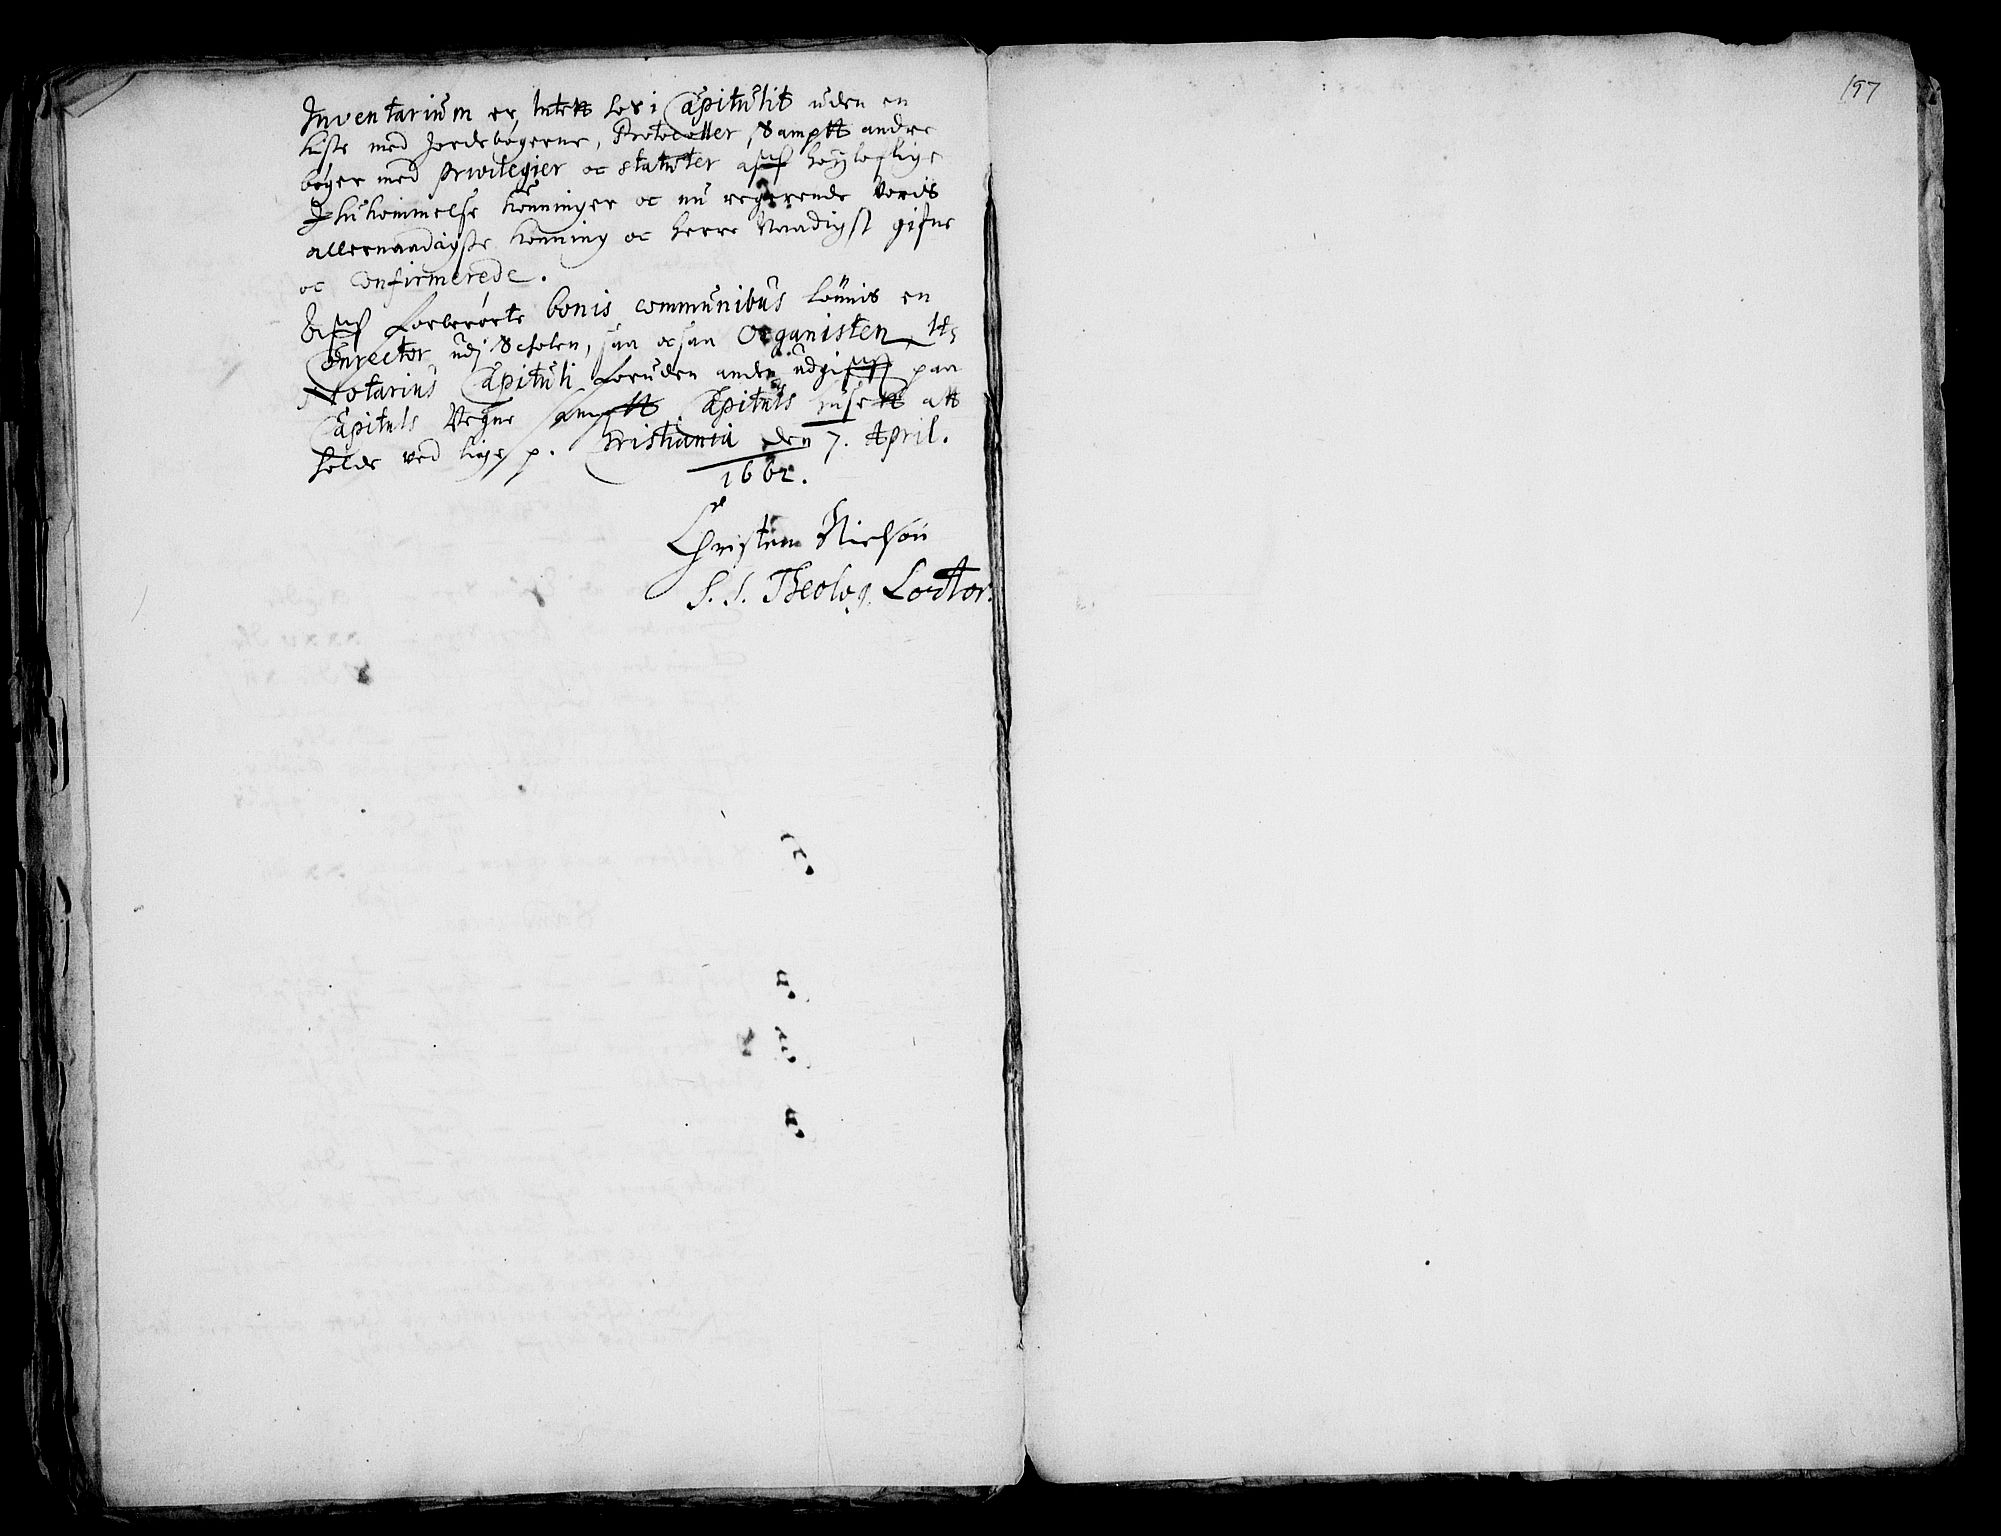 197
Inventarium er intett hos i Capitulit uden en
kiste med Jordebøgerne, Protocoller, Sampt andre
bøger med privilegier oc statuter aff høylofflige
Ihukommelse konninger oc nu regerende voris
allernaadigste konning oc herre Naadigst gifne
oc Confirmerede.
Aff forberørte bonis communibus lønnis en
Conrector udj Scholen, saa ocsaa Organisten,
Notarius Capituli foruden anden udgifft paa
Capitels Vegne sampt Capitels husett att
holde ved lige p. Christiania den 7. April.
1662.
Christen Nielsøn
S. S. Theolog. Lector.